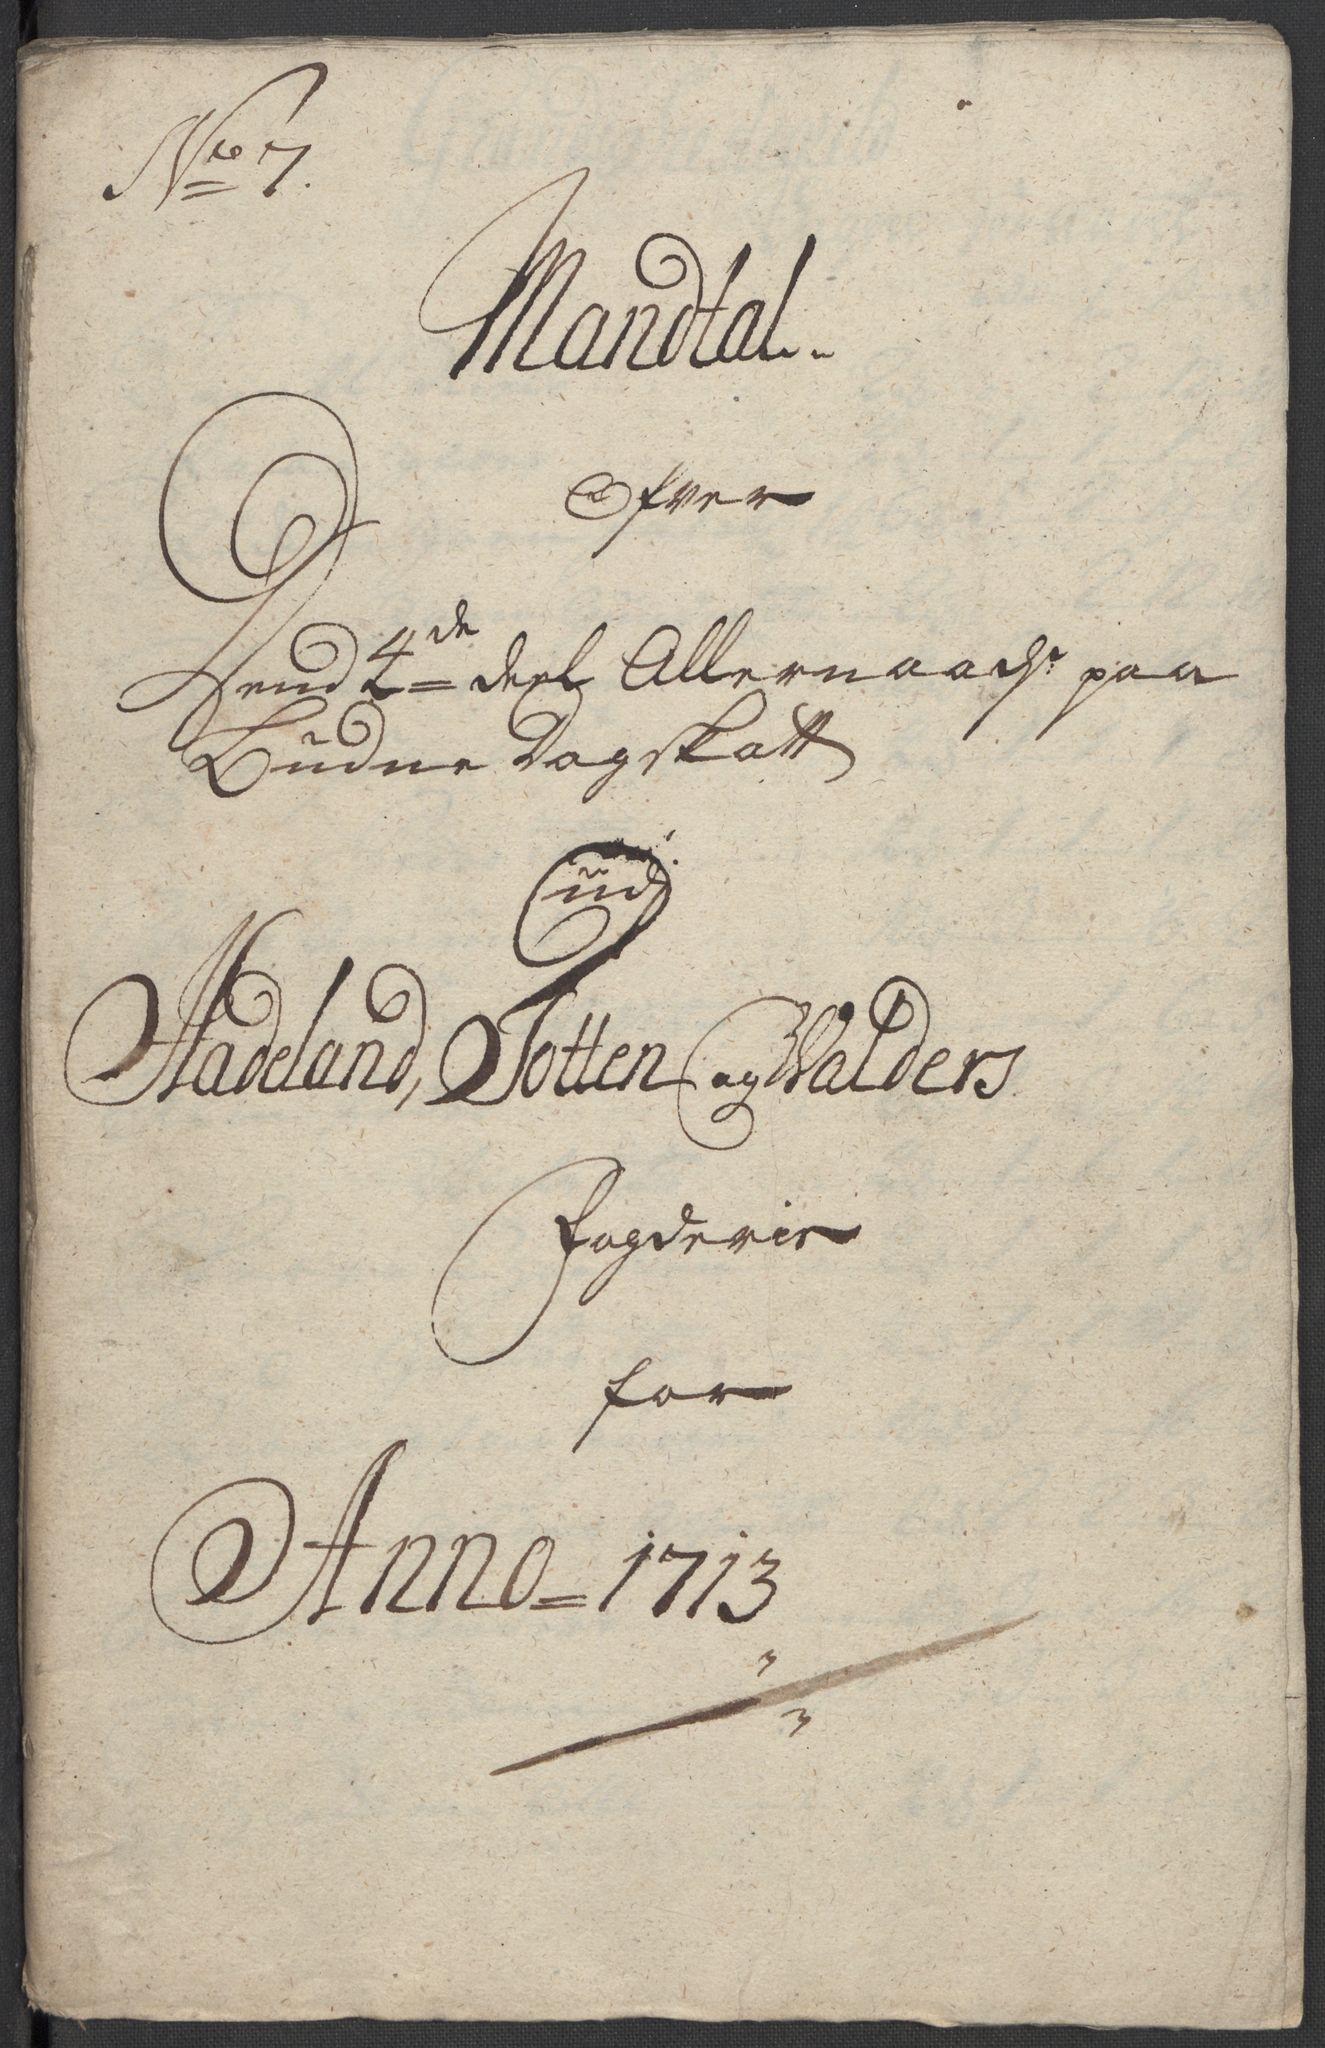 No 7.
Mandtal..
Ofver
Dend 4de deel Allernaads: paa
Budne Dagskatt
ud
Hadeland, Totten og Walders
Fogderie
for
Anno = 1713